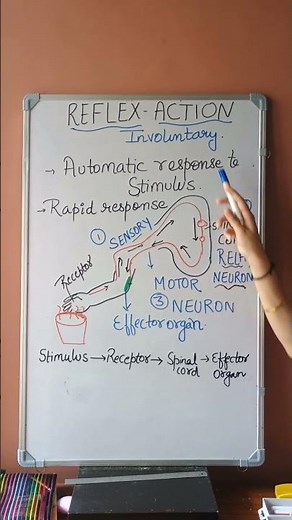 REFLEX-ACTION
Involuntary.
→ Automatic response to
Stimulus.
→ Rapid response
① SENSORY
Receptor
NEURON
MOTOR
③ NEURON
Effector organ.
Stimulus → Receptor → Spinal cord → Effector organ